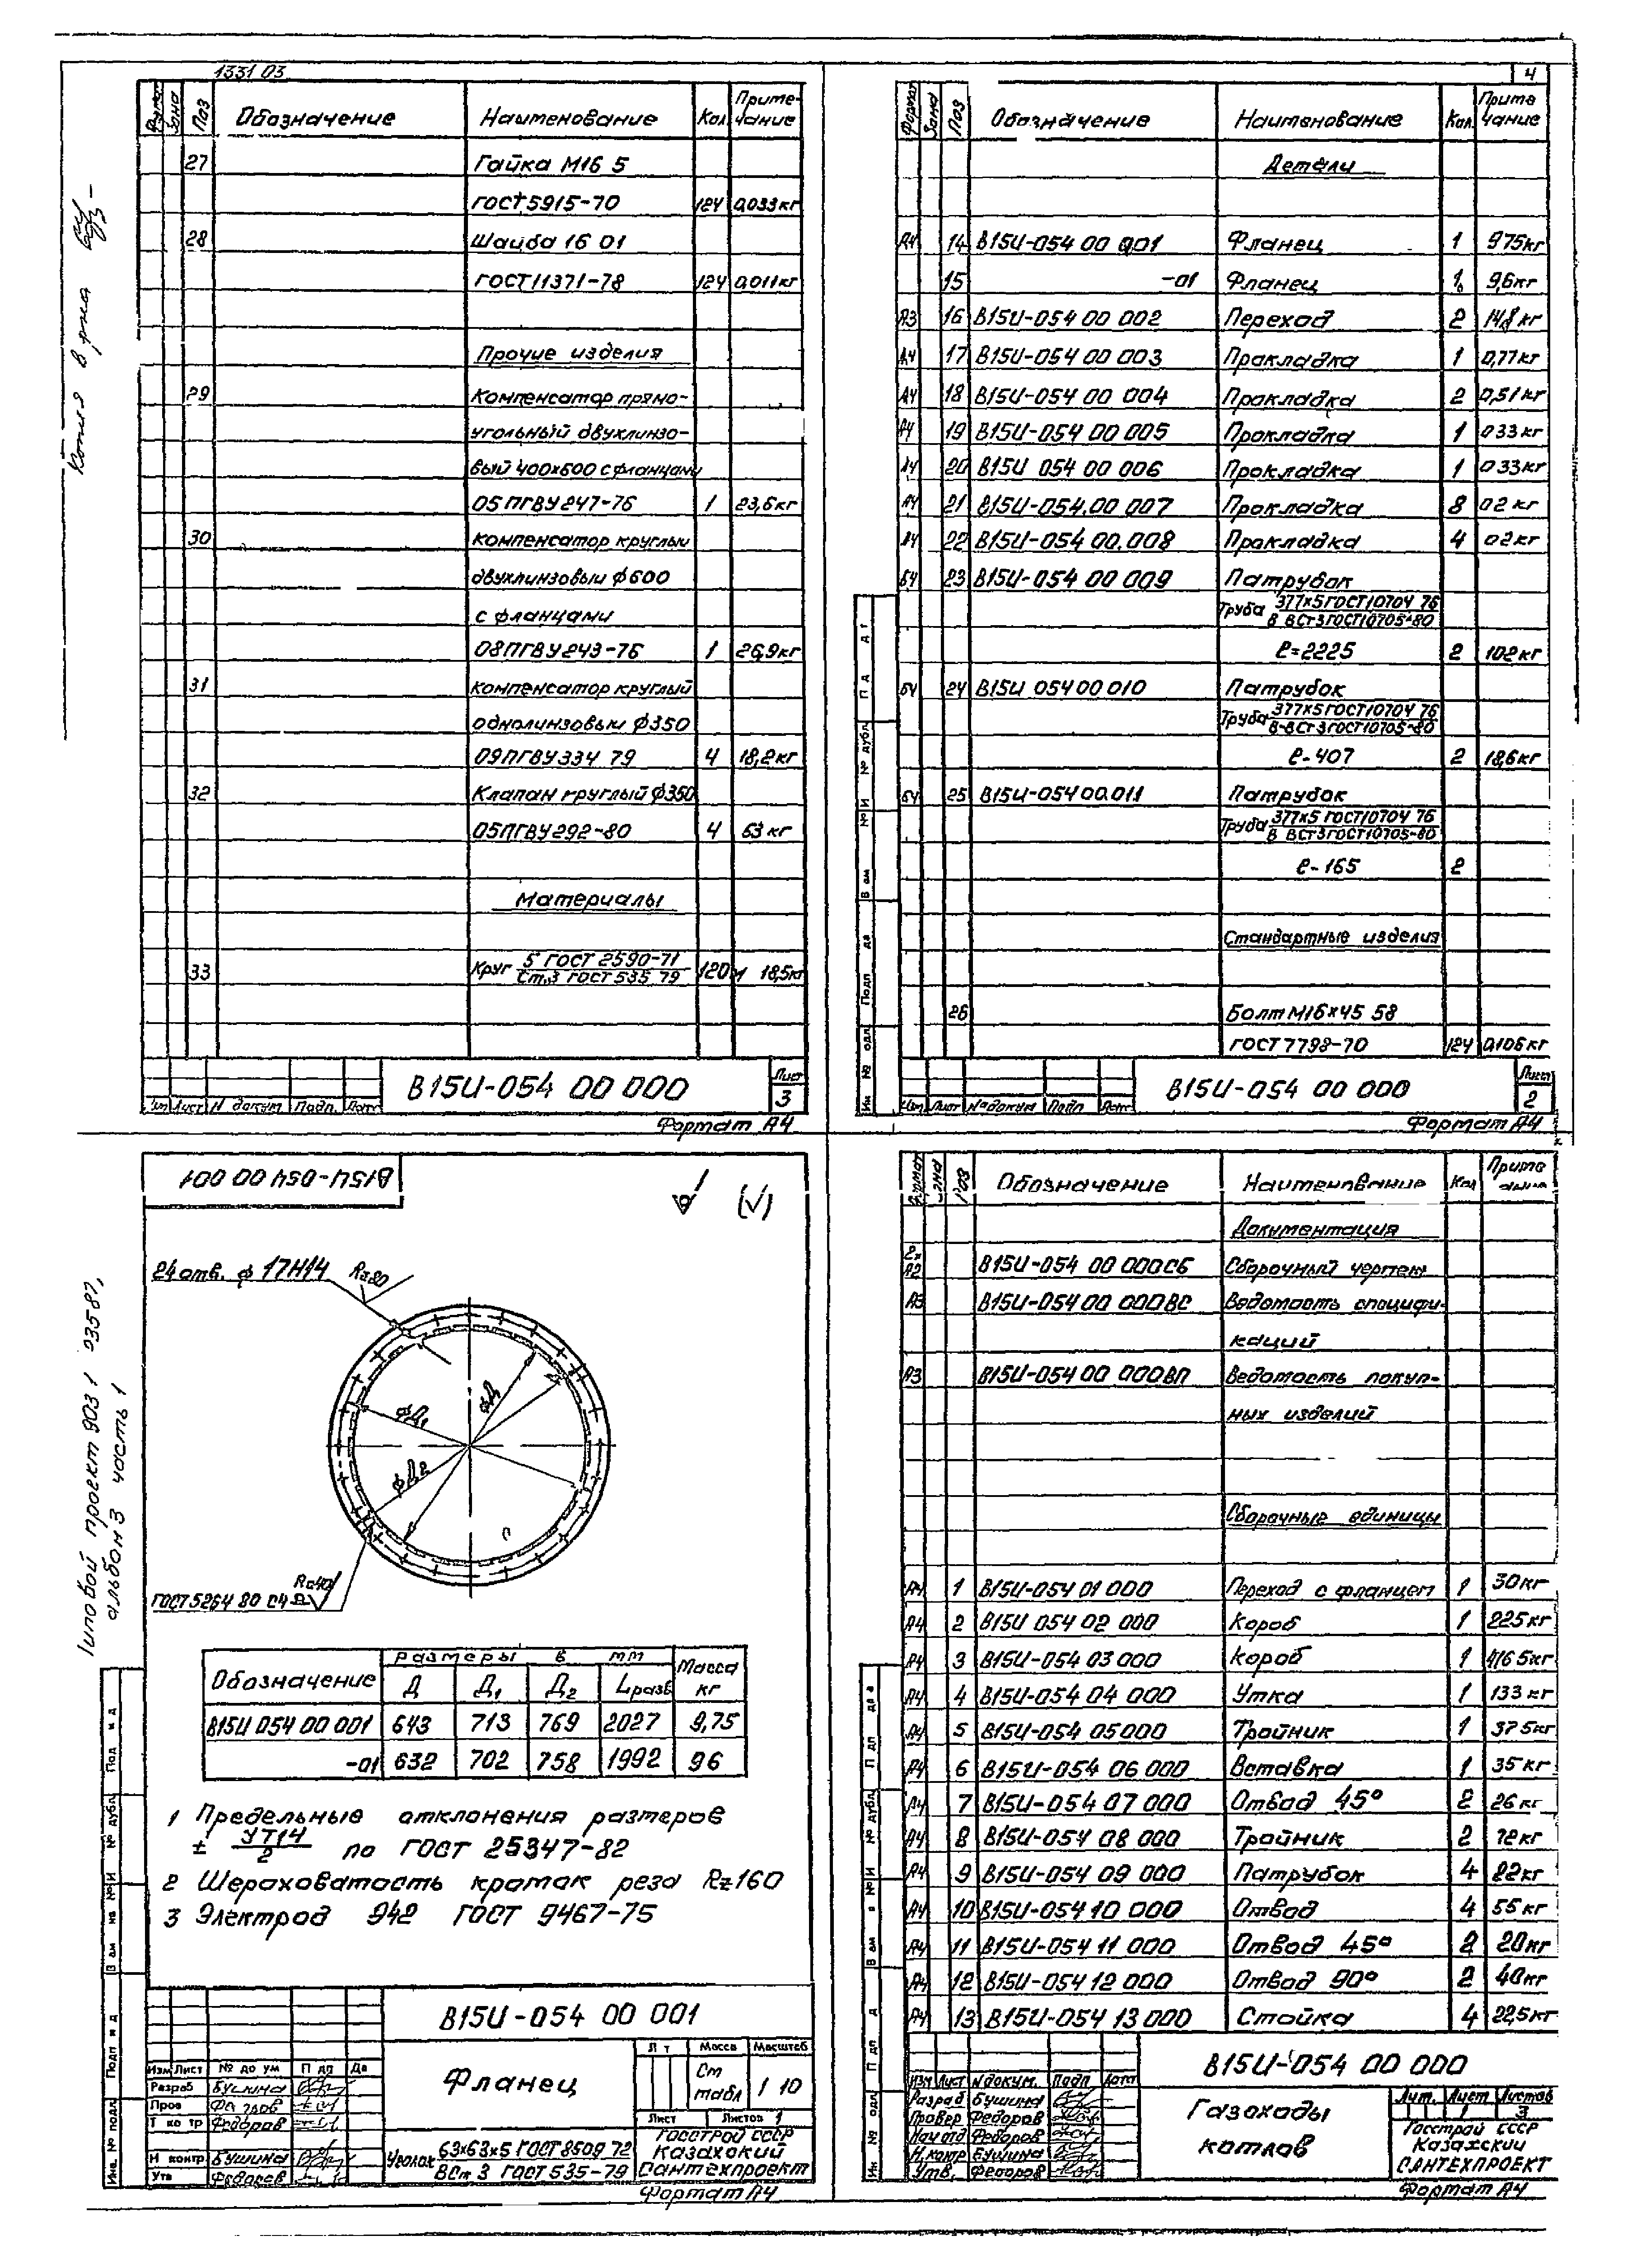 1331 03
4
Формат Зона Поз Обозначение Наименование Кол Приме-чание
27 Гайка М16 5
ГОСТ 5915-70 124 0,033кг
28 Шайба 16 01
ГОСТ 11371-78 124 0,011кг
Прочие изделия
29 Компенсатор прямо-
угольный двухлинзо-
вый 400х600 с фланцами
05 ПГВУ 247-76 1 23,6кг
30 Компенсатор круглый
двухлинзовый ф600
с фланцами
08ПГВУ243-76 1 26,9кг
31 Компенсатор круглый
однолинзовый ф350
09ПГВУ 334 79 4 18,2кг
32 Клапан круглый ф350
05ПГВУ 292-80 4 53 кг
Материалы
33 Круг 5 ГОСТ 2590-71 120м 18,5кг
Ст.3 ГОСТ 535 79
В15И-054 00 000
Лист 3
Изм Лист N докум Подп. Дата
Формат А4
Формат Зона Поз Обозначение Наименование Кол. Приме чание
Детали
А4 14 В15И-054 00 001 Фланец 1 975кг
15 -01 Фланец 1 9,6кг
А3 16 В15И-054 00 002 Переход 2 14,8 кг
А4 17 В15И-054 00 003 Прокладка 1 0,77 кг
А4 18 В15И-054 00 004 Прокладка 2 0,51 кг
А4 19 В15И-054 00 005 Прокладка 1 033 кг
А4 20 В15И 054 00 006 Прокладка 1 033 кг
А4 21 В15И-054.00 007 Прокладка 8 02 кг
А4 22 В15И-054 00.008 Прокладка 4 02 кг
б4 23 В15И-054 00 009 Патрубок
Труба 377х5 ГОСТ 10704 76
В ВСт3 ГОСТ 10705-80
ℓ=2225 2 102 кг
б4 24 В15И 054 00 010 Патрубок
Труба 377х5 ГОСТ 10704 76
В-ВСт3 ГОСТ 10705-80
ℓ-407 2 18,6кг
б4 25 В15И-054 00.011 Патрубок
Труба 377х5 ГОСТ 10704 76
В ВСт3 ГОСТ 10705-80
ℓ-165 2
Стандартные изделия
26 Болт М16х45 58
ГОСТ 7798-70 124 0,106 кг
В15И-054 00 000
Лист 2
Изм Лист №докум Подп Дата
Формат А4
Типовой проект 903 1 035 87,
альбом 3 часть 1
В15И-054 00 001
(√)
24 отв. ф 17Н14 Rz80
фД
фД1
фД2
Rz40
ГОСТ 5264 80 С4
Обозначение Размеры в мм Масса кг
Д Д1 Д2 Lразв
В15И 054 00 001 643 713 769 2027 9,75
-01 632 702 758 1992 96
1 Предельные отклонения размеров
± УТ14/2 по ГОСТ 25347-82
2 Шероховатость кромок реза Rz160
3 Электрод Э42 ГОСТ 9467-75
В15И-054 00 001
Фланец
Л т Масса Масштаб
См табл 1 10
Лист Листов 1
Изм Лист № до ум П дп Да
Разраб Бушина
Пров Федоров
Т ко тр Федоров
Н контр Бушина
Утв Федоров
Уголок 63х63х5 ГОСТ 8509 72
ВСт 3 ГОСТ 535-79
Госстрой СССР
Казахский
Сантехпроект
Формат А4
Формат Зона Поз Обозначение Наименование Кол Приме чание
Документация
2х А2 В15И-054 00 000СБ Сборочный чертеж
А3 В15И-054 00 000ВС Ведомость специфи-
каций
А3 В15И-054 00 000ВП Ведомость покуп-
ных изделий
Сборочные единицы
А4 1 В15И-054 01 000 Переход с фланцем 1 30кг
А4 2 В15И 054 02 000 Короб 1 225кг
А4 3 В15И-054 03 000 Короб 1 416 5кг
А4 4 В15И-054 04 000 Утка 1 133 кг
А4 5 В15И-054 05000 Тройник 1 37 5кг
А4 6 В15И-054 06 000 Вставка 1 35 кг
А4 7 В15И-054 07 000 Отвод 45° 2 26 кг
А4 8 В15И-054 08 000 Тройник 2 72кг
А4 9 В15И-054 09 000 Патрубок 4 22кг
А4 10 В15И-054 10 000 Отвод 4 55 кг
А4 11 В15И-054 11 000 Отвод 45° 2 20кг
А4 12 В15И-054 12 000 Отвод 90° 2 40кг
А4 13 В15И-054 13 000 Стойка 4 22,5кг
В15И-054 00 000
Изм Лист Nдокум. Подп Дата
Разраб Бушина
Провер Федоров
Нач отд Федоров
Н.контр Бушина
Утв. Федоров
Газоходы
котлов
Лит. Лист Листов
1 3
Госстрой СССР
Казахский
САНТЕХПРОЕКТ
Формат А4